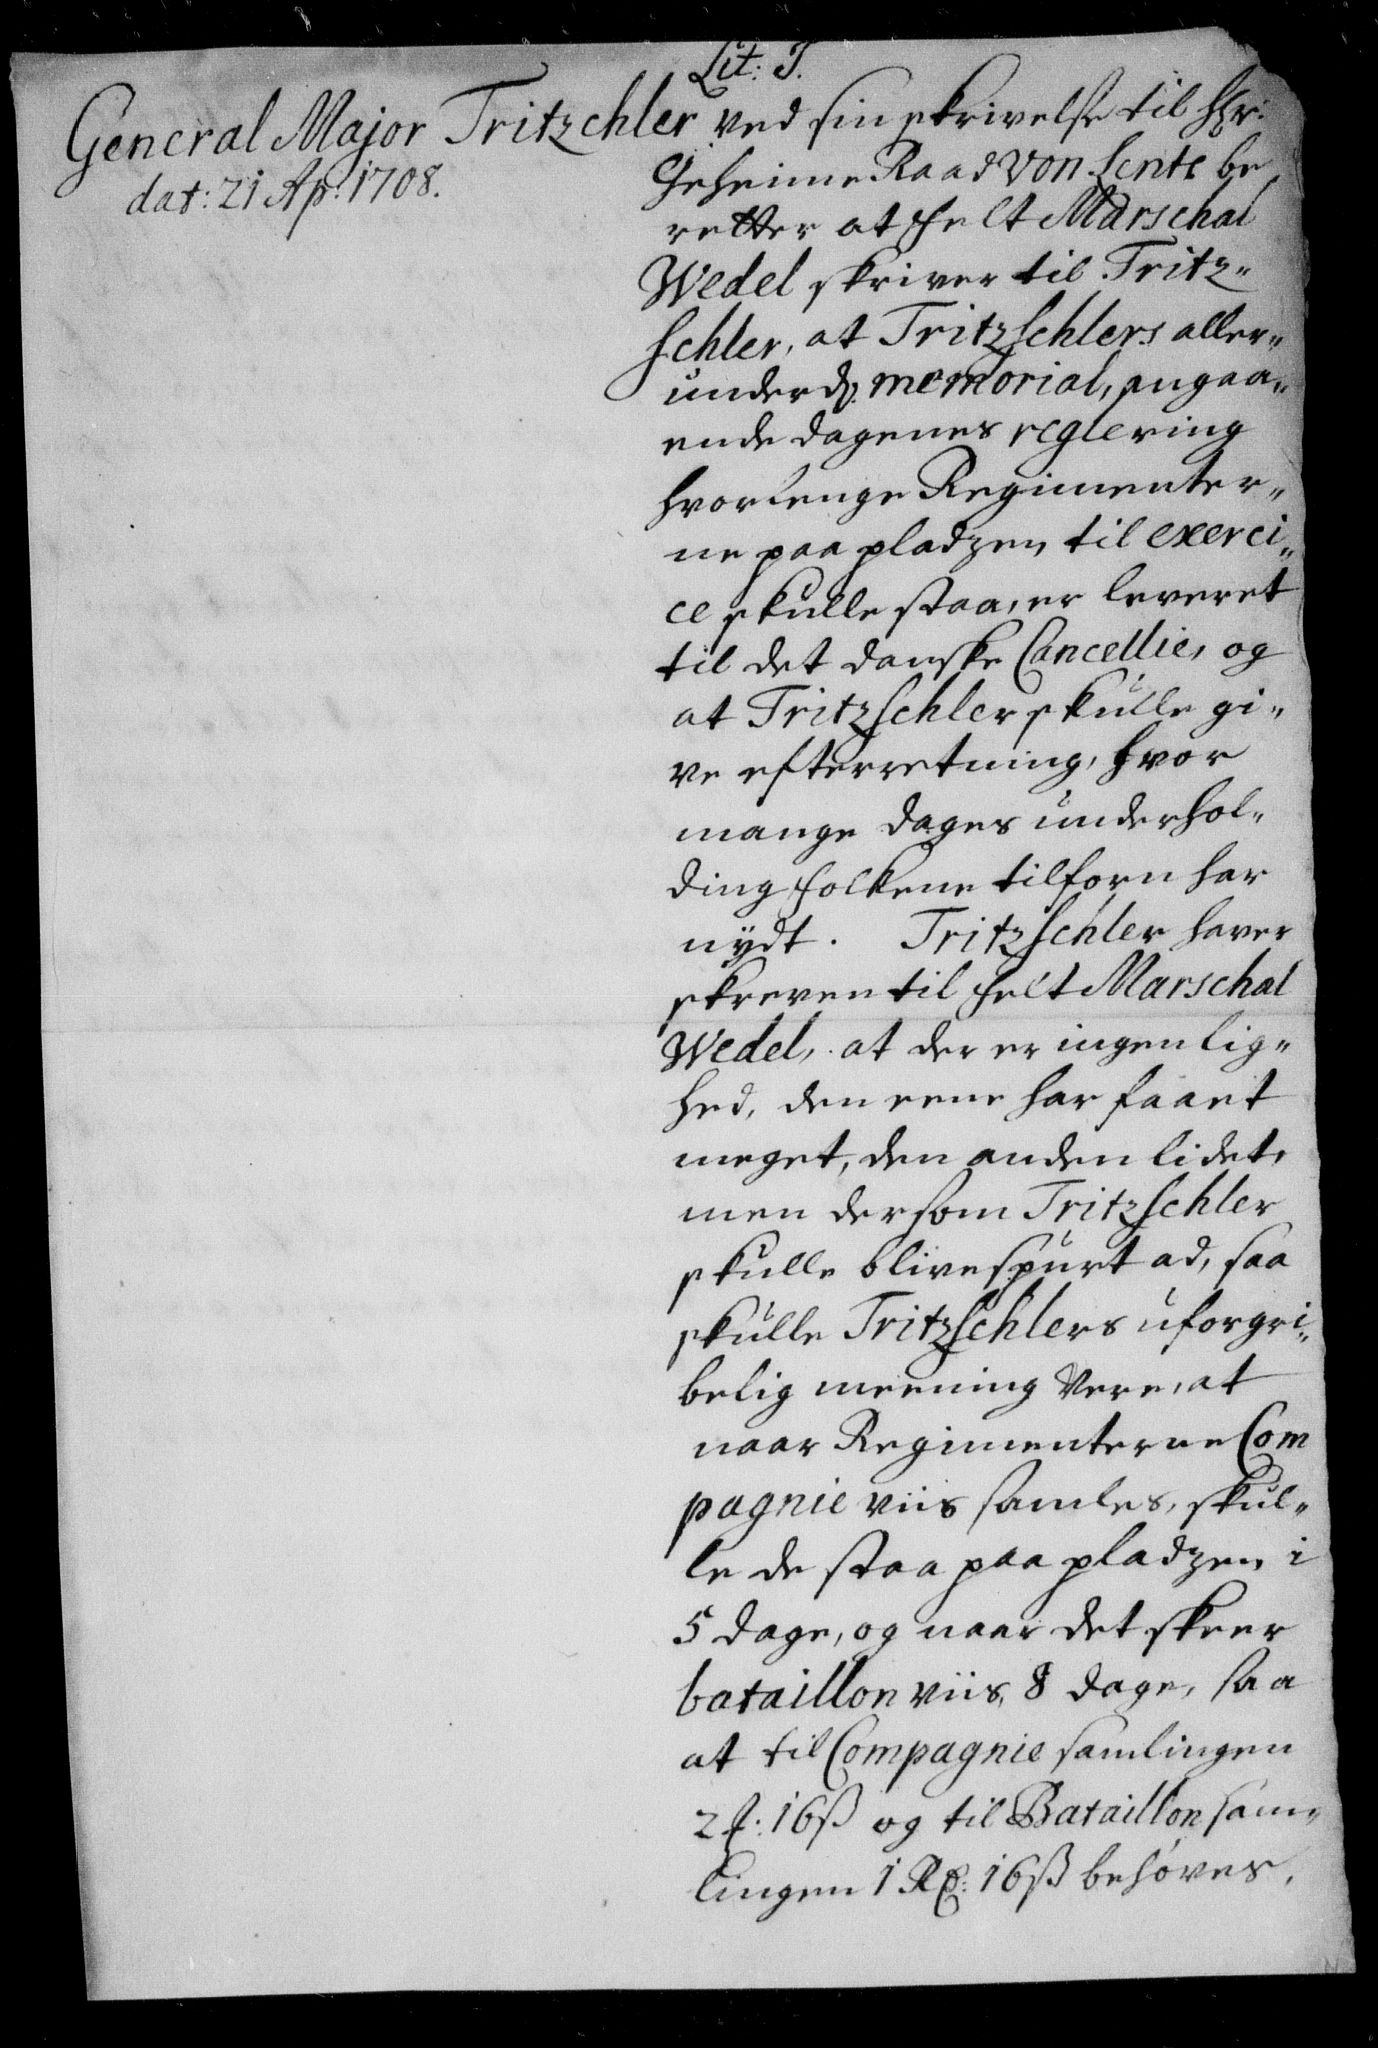 Lit: J.
General Major Tritzchler ved sin skrivelse til Hr:
dat: 21 Ap: 1708.
Geheime Raad von Lente be
retter at Felt Marschal
Wedel skriver til Tritz„
schler, at Tritzschlers aller„
underd: memorial, angaa„
ende dagenes reglering
hvorlenge Regimenter„
ne paa pladzen til exerci„
ce skulle staa, er leveret
til det danske Cancellie, og
at Tritzschler skulle gi„
ve efterretning, hvor
mange dages underhol„
ding folkene tilforn har
nÿdt. Tritzschler haver
skreven til Felt Marschal
Wedel, at der er ingen lig„
hed, den eene har faaet
meget, den anden lidet,
men dersom Tritzschler
skulle blive spurt ad, saa
skulle Tritzschlers uforgri„
belig meening vere, at
naar Regimenterne Com
pagnie viis samles, skul„
le de staa paa pladzen i
5 dage, og naar det skeer
bataillon viis, 8 dage, saa
at til Compagnie samlingen
2 ƒ: 16 ß og til Bataillon sam„
lingen 1 Rd: 16 ß behøves.